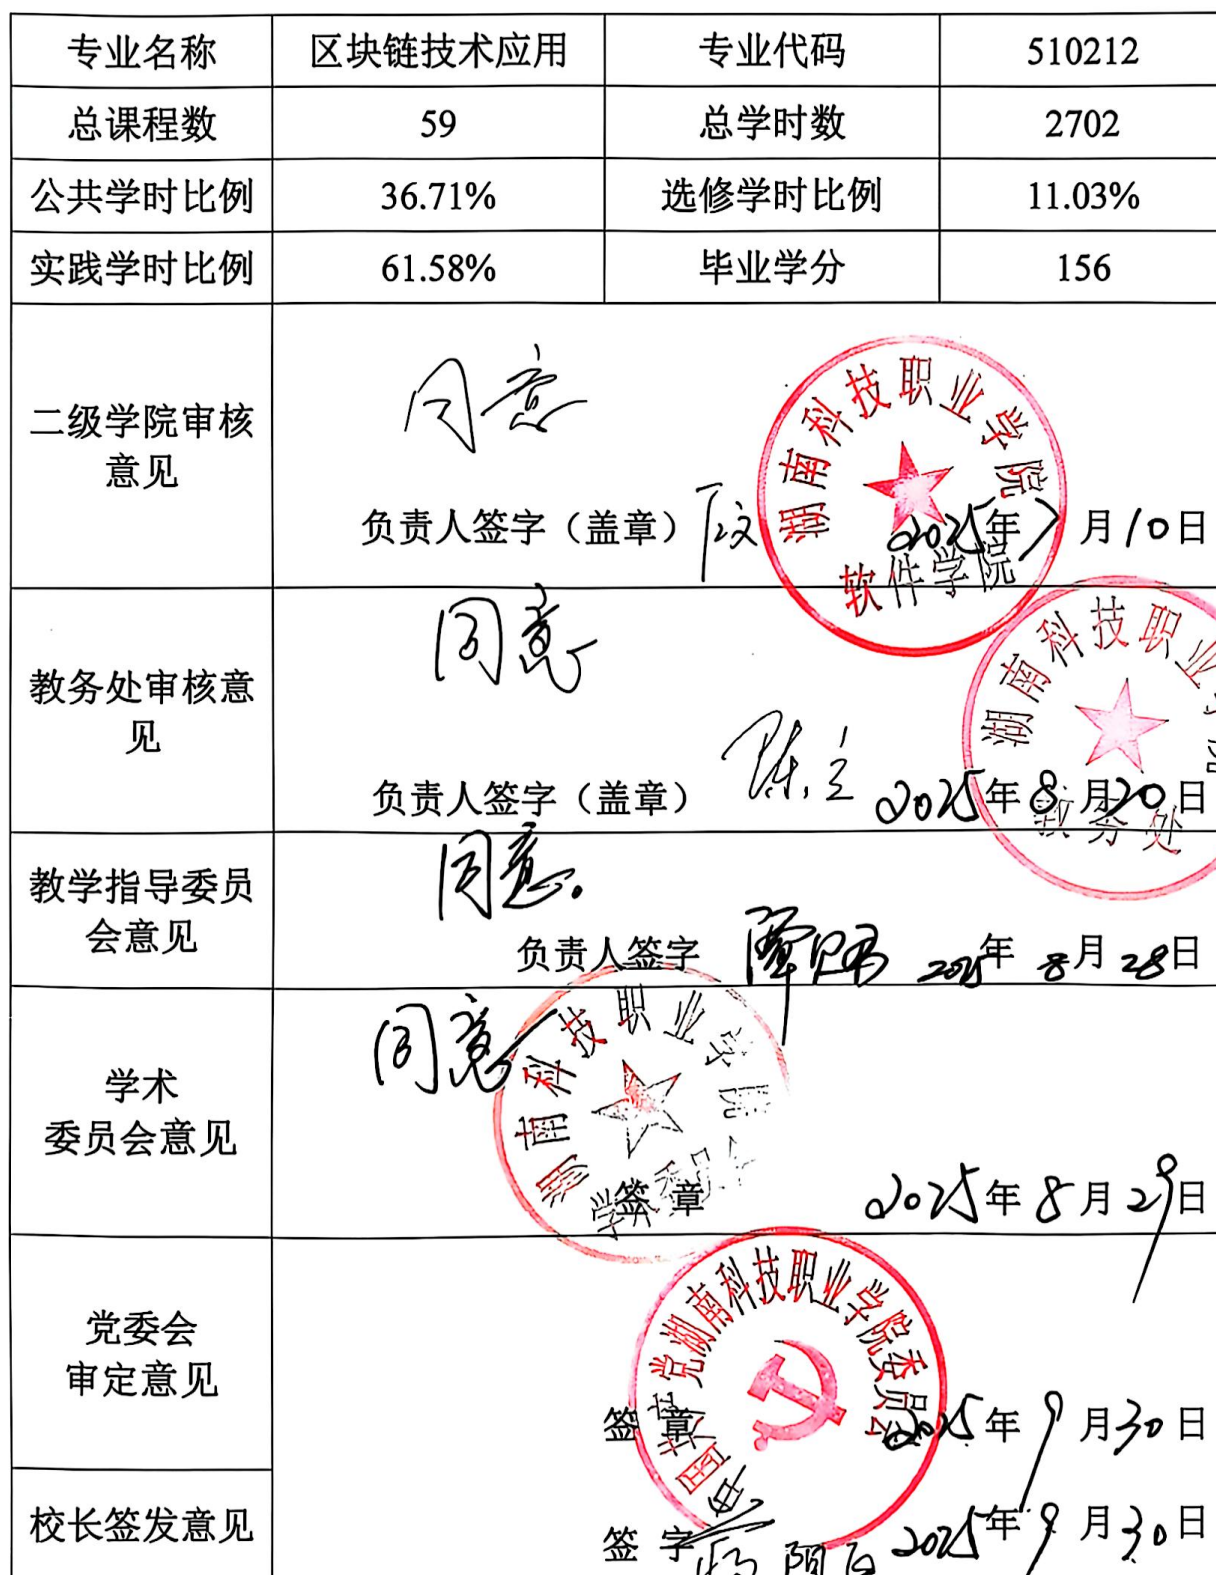 专业名称 区块链技术应用 专业代码 510212
总课程数 59 总学时数 2702
公共学时比例 36.71% 选修学时比例 11.03%
实践学时比例 61.58% 毕业学分 156
二级学院审核
意见
同意
湖南科技职业学院
软件学院
负责人签字（盖章） 2025年7月10日
教务处审核意
见
同意
湖南科技职业
教务处
负责人签字（盖章） 陈立 2025年8月20日
教学指导委员
会意见
同意。
负责人签字 2025年8月28日
学术
委员会意见
同意
湖南科技职业学院
签 章 2025年8月29日
党委会
审定意见
中国共产党湖南科技职业学院委员会
签 章 2025年9月30日
校长签发意见
签 字 2025年9月30日